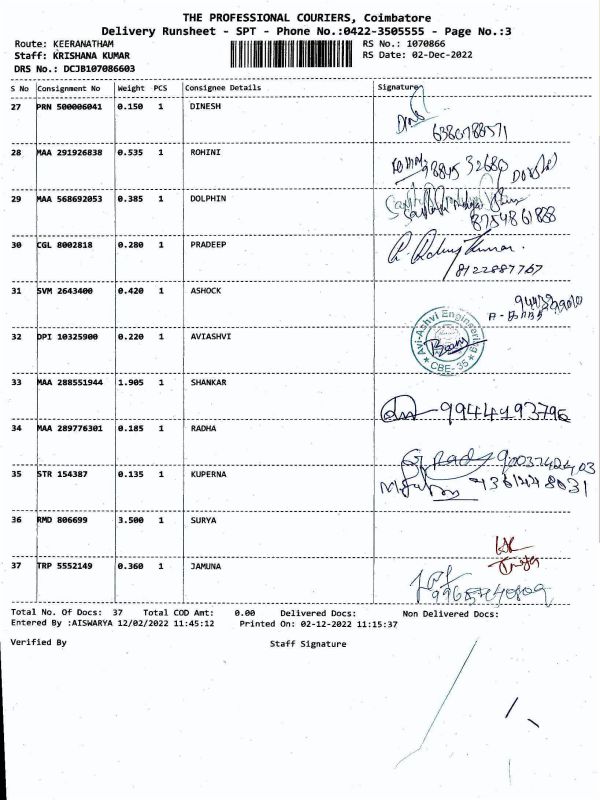 THE PROFESSIONAL COURIERS, Coimbatore
Delivery Runsheet - SPT - Phone No.:0422-3505555 - Page No.:3
Route: KEERANATHAM
RS No.: 1070866
Staff: KRISHANA KUMAR
RS Date: 02-Dec-2022
DRS No.: DCJB107086603
S No Consignment No Weight PCS Consignee Details Signature
27 PRN 500006041 0.150 1 DINESH
6380788571
28 MAA 291926838 0.535 1 ROHINI
29 MAA 568692053 0.385 1 DOLPHIN
8754861888
30 CGL 8002818 0.280 1 PRADEEP
8122887767
31 SVM 2643400 0.420 1 ASHOCK
32 DPI 10325900 0.220 1 AVIASHVI
Avi-Ashvi Engineering
CBE-35
33 MAA 288551944 1.905 1 SHANKAR
9944493796
34 MAA 289776301 0.185 1 RADHA
9003742403
35 STR 154387 0.135 1 KUPERNA
36 RMD 806699 3.500 1 SURYA
37 TRP 5552149 0.360 1 JAMUNA
Total No. Of Docs: 37 Total COD Amt: 0.00 Delivered Docs: Non Delivered Docs:
Entered By :AISWARYA 12/02/2022 11:45:12 Printed On: 02-12-2022 11:15:37
Verified By Staff Signature